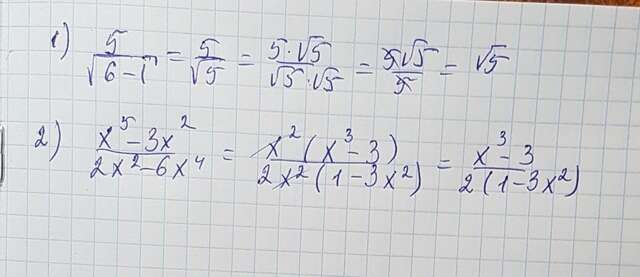 1) 5/√(6-1) = 5/√5 = 5·√5/√5·√5 = 5√5/5 = √5
2) x⁵-3x²/2x²-6x⁴ = x²(x³-3)/2x²(1-3x²) = x³-3/2(1-3x²)